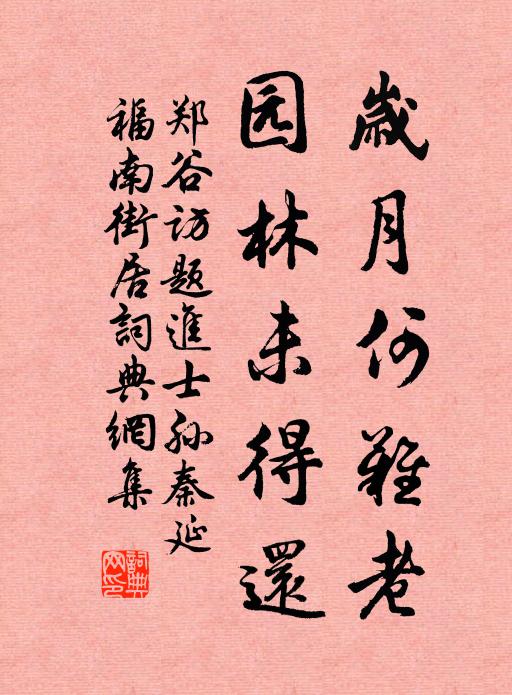 歲月何難老
园林未得還
郑谷訪題進士孙秦延
福南街居詞典網集
詞典网印